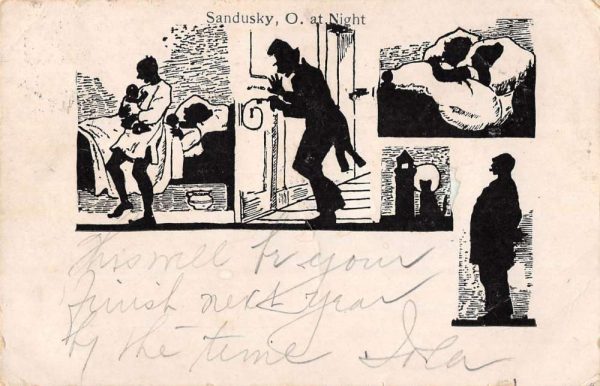 Sandusky, O. at Night
This will be your
finish next year
by the time Iola